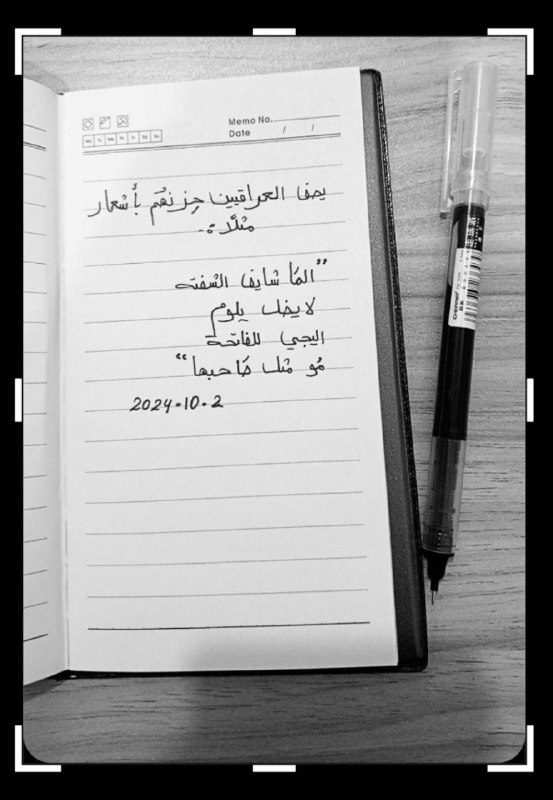 Memo No.
Mo Tu We Th Fr Sa Su
Date / /
يصف العراقيين حِزنهُم بأشعار
مثلًا :-
"المّا شايف الشفته
لا يضل يلوم
اليجي للفاتحة
مُو مثل صَاحبها"
2024.10.2